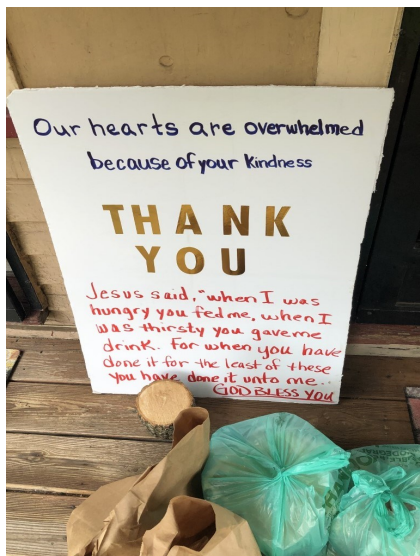 Our hearts are overwhelmed
because of your kindness
THANK
YOU
Jesus said, "when I was
hungry you fed me, when I
was thirsty you gave me
drink. For when you have
done it for the least of these
you have done it unto me..
GOD BLESS YOU